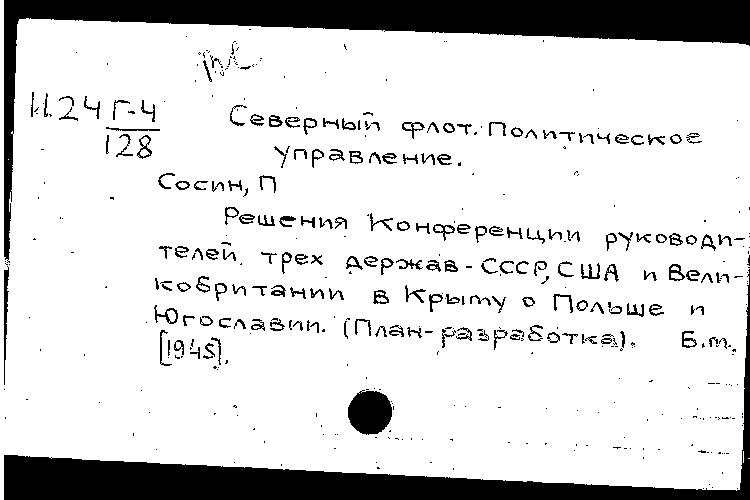 И.24 Г-4
128
Северный флот. Политическое
управление.
Сосин, П
Решения Конференции руководи-
телей трех держав - СССР, США и Вели-
кобритании в Крыму о Польше и
Югославии. (План-разработка). Б.т.,
[1945].